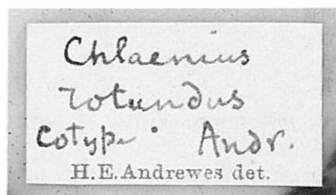 Chlaenius
rotundus
Cotype. Andr.
H.E.Andrewes det.